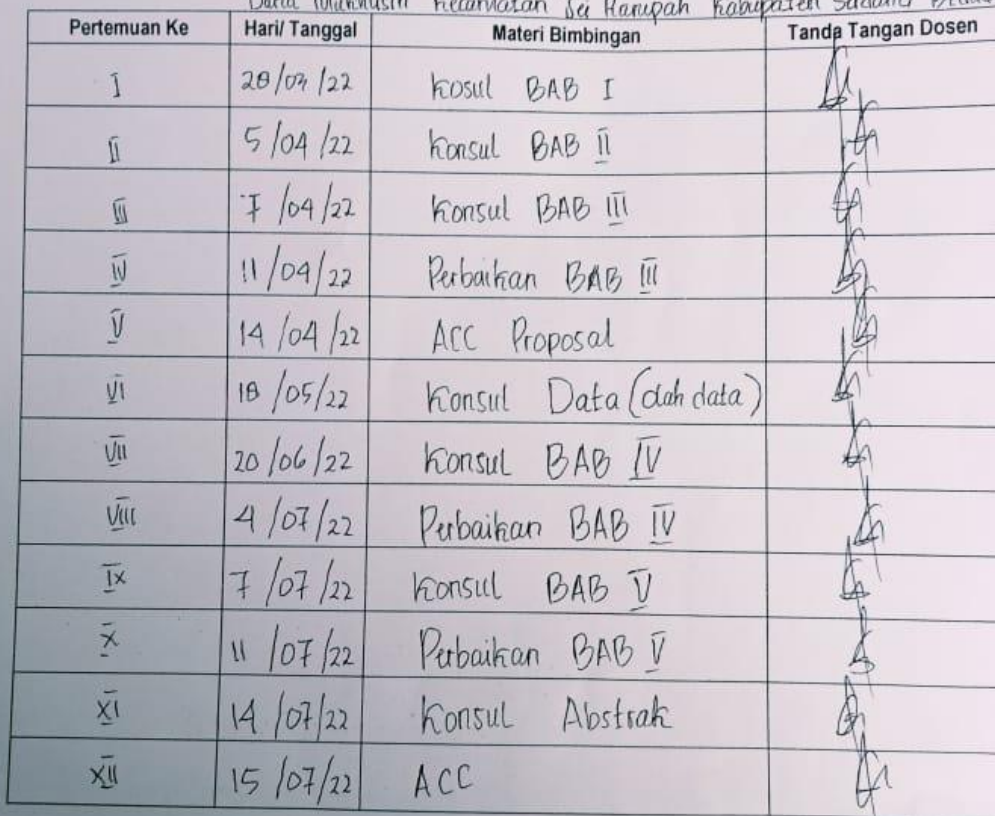 Kecamatan Sei Harapah Kabupaten
Pertemuan Ke Hari/ Tanggal Materi Bimbingan Tanda Tangan Dosen
I 28/03/22 Kosul BAB I
II 5/04/22 Konsul BAB II
III 7/04/22 Konsul BAB III
IV 11/04/22 Perbaikan BAB III
V 14/04/22 ACC Proposal
VI 18/05/22 Konsul Data (olah data)
VII 20/06/22 Konsul BAB IV
VIII 4/07/22 Perbaikan BAB IV
IX 7/07/22 Konsul BAB V
X 11/07/22 Perbaikan BAB V
XI 14/07/22 Konsul Abstrak
XII 15/07/22 ACC